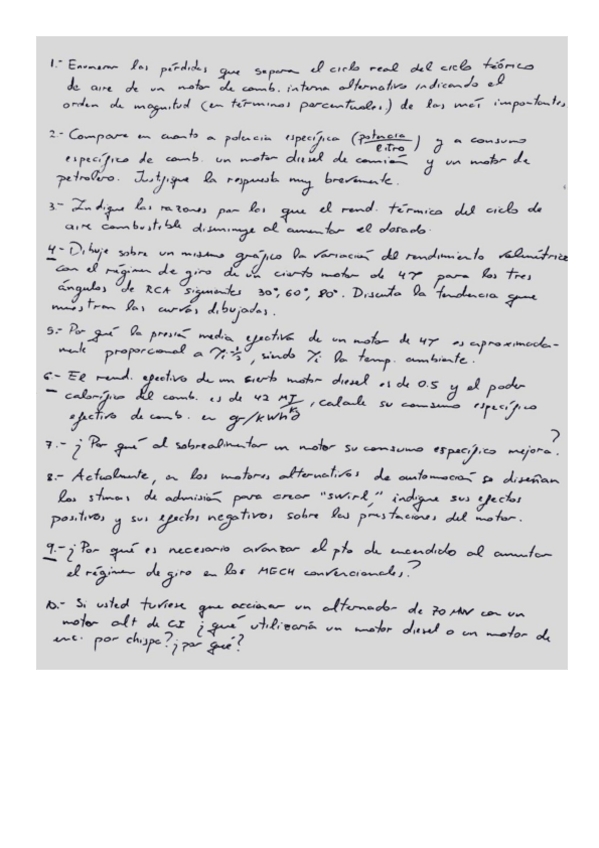 1.- Enumerar las pérdidas que separan el ciclo real del ciclo teórico
de aire de un motor de comb. interna alternativo indicando el
orden de magnitud (en términos porcentuales) de las más importantes
2.- Compare en cuanto a potencia específica (potencia/litro) y a consumo
específico de comb. un motor diesel de camión y un motor de
petrolero. Justifique la respuesta muy brevemente.
3.- Indique las razones por las que el rend. térmico del ciclo de
aire combustible disminuye al aumentar el dosado.
4.- Dibuje sobre un mismo gráfico la variación del rendimiento volumétrico
con el régimen de giro de un cierto motor de 4T para los tres
ángulos de RCA siguientes 30°, 60°, 80°. Discuta la tendencia que
muestran las curvas dibujadas.
5.- Por qué la presión media efectiva de un motor de 4T es aproximada-
mente proporcional a , siendo Ti la temp. ambiente.
6.- El rend. efectivo de un cierto motor diesel es de 0.5 y el poder
calorífico del comb. es de 42 MJ/kg, calcule su consumo específico
efectivo de comb. en gr/kWh
7.- ¿Por qué al sobrealimentar un motor su consumo específico mejora.?
8.- Actualmente, en los motores alternativos de automoción se diseñan
los de admisión para crear "swirl," indique sus efectos
positivos y sus efectos negativos sobre las prestaciones del motor.
9.- ¿Por qué es necesario avanzar el pto de encendido al aumentar
el régimen de giro en los MECH convencionales?
10.- Si usted tuviese que accionar un alternador de 70 MW con un
motor alt de CI ¿qué utilizaría un motor diesel o un motor de
enc. por chispa? ¿por qué?